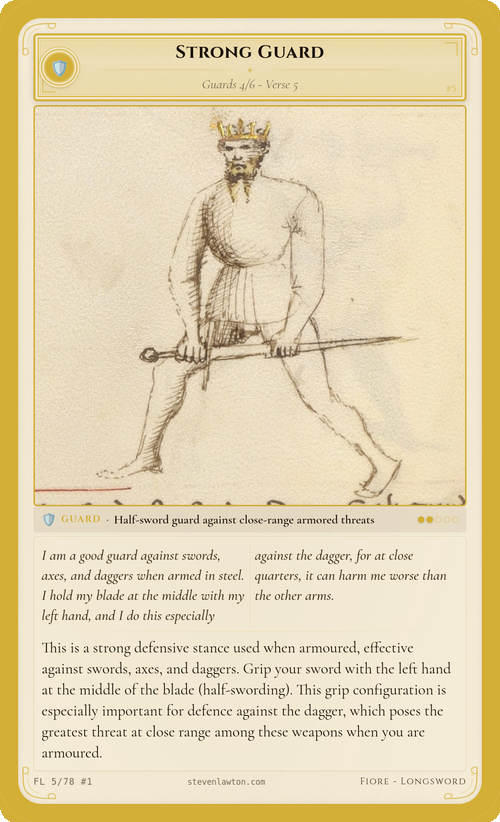 STRONG GUARD
Guards 4/6 - Verse 5
#5
GUARD · Half-sword guard against close-range armored threats
I am a good guard against swords,
axes, and daggers when armed in steel.
I hold my blade at the middle with my
left hand, and I do this especially
against the dagger, for at close
quarters, it can harm me worse than
the other arms.
This is a strong defensive stance used when armoured, effective
against swords, axes, and daggers. Grip your sword with the left hand
at the middle of the blade (half-swording). This grip configuration is
especially important for defence against the dagger, which poses the
greatest threat at close range among these weapons when you are
armoured.
FL 5/78 #1
stevenlawton.com
FIORE - LONGSWORD